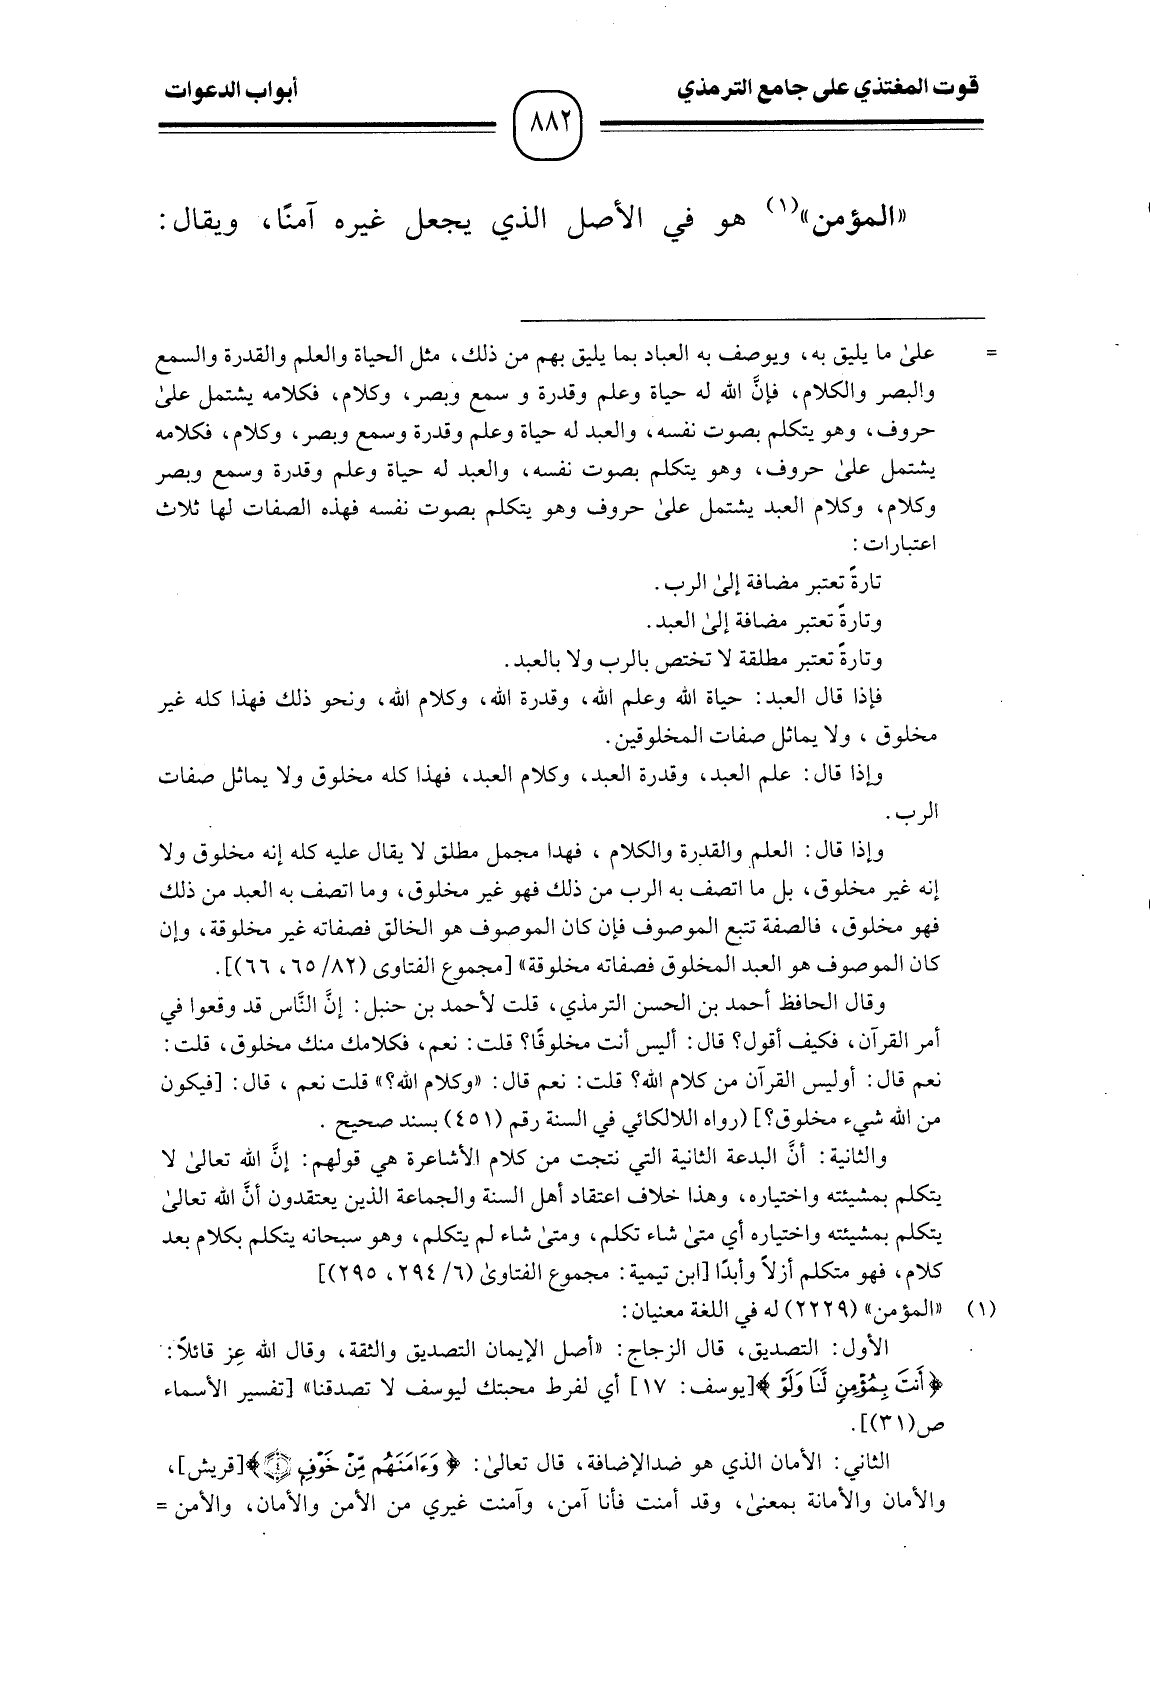 قوت المغتذي على جامع الترمذي
أبواب الدعوات
٨٨٢
«المؤمن»(١) هو في الأصل الذي يجعل غيره آمنًا، ويقال:
= علىٰ ما يليق به، ويوصف به العباد بما يليق بهم من ذلك، مثل الحياة والعلم والقدرة والسمع
والبصر والكلام، فإنَّ الله له حياة وعلم وقدرة و سمع وبصر، وكلام، فكلامه يشتمل علىٰ
حروف، وهو يتكلم بصوت نفسه، والعبد له حياة وعلم وقدرة وسمع وبصر، وكلام، فكلامه
يشتمل علىٰ حروف، وهو يتكلم بصوت نفسه، والعبد له حياة وعلم وقدرة وسمع وبصر
وكلام، وكلام العبد يشتمل علىٰ حروف وهو يتكلم بصوت نفسه فهذه الصفات لها ثلاث
اعتبارات:
تارةً تعتبر مضافة إلىٰ الرب.
وتارةً تعتبر مضافة إلىٰ العبد.
وتارةً تعتبر مطلقة لا تختص بالرب ولا بالعبد.
فإذا قال العبد: حياة الله وعلم الله، وقدرة الله، وكلام الله، ونحو ذلك فهذا كله غير
مخلوق ، ولا يماثل صفات المخلوقين.
وإذا قال: علم العبد، وقدرة العبد، وكلام العبد، فهذا كله مخلوق ولا يماثل صفات
الرب.
وإذا قال: العلم والقدرة والكلام ، فهدا مجمل مطلق لا يقال عليه كله إنه مخلوق ولا
إنه غير مخلوق، بل ما اتصف به الرب من ذلك فهو غير مخلوق، وما اتصف به العبد من ذلك
فهو مخلوق، فالصفة تتبع الموصوف فإن كان الموصوف هو الخالق فصفاته غير مخلوقة، وإن
كان الموصوف هو العبد المخلوق فصفاته مخلوقة» [مجموع الفتاوى (٨٢/ ٦٥، ٦٦)].
وقال الحافظ أحمد بن الحسن الترمذي، قلت لأحمد بن حنبل: إنَّ النَّاس قد وقعوا في
أمر القرآن، فكيف أقول؟ قال: أليس أنت مخلوقًا؟ قلت: نعم، فكلامك منك مخلوق، قلت:
نعم قال: أوليس القرآن من كلام الله؟ قلت: نعم قال: «وكلام الله؟» قلت نعم ، قال: [فيكون
من الله شيء مخلوق؟] (رواه اللالكائي في السنة رقم (٤٥١) بسند صحيح .
والثانية: أنَّ البدعة الثانية التي نتجت من كلام الأشاعرة هي قولهم: إنَّ الله تعالىٰ لا
يتكلم بمشيئته واختياره، وهذا خلاف اعتقاد أهل السنة والجماعة الذين يعتقدون أنَّ الله تعالىٰ
يتكلم بمشيئته واختياره أي متىٰ شاء تكلم، ومتىٰ شاء لم يتكلم، وهو سبحانه يتكلم بكلام بعد
كلام، فهو متكلم أزلاً وأبدًا [ابن تيمية: مجموع الفتاوىٰ (٦/ ٢٩٤، ٢٩٥)]
(١) «المؤمن» (٢٢٢٩) له في اللغة معنيان:
الأول: التصديق، قال الزجاج: «أصل الإيمان التصديق والثقة، وقال الله عز قائلاً:
﴿أَنتَ بِمُؤْمِنٍ لَّنَا وَلَوْ﴾[يوسف: ١٧] أي لفرط محبتك ليوسف لا تصدقنا» [تفسير الأسماء
ص(٣١)].
الثاني: الأمان الذي هو ضدالإضافة، قال تعالىٰ: ﴿ وَءَامَنَهُم مِّنْ خَوْفٍ ۝٤﴾[قريش]،
والأمان والأمانة بمعنىٰ، وقد أمنت فأنا آمن، وآمنت غيري من الأمن والأمان، والأمن =